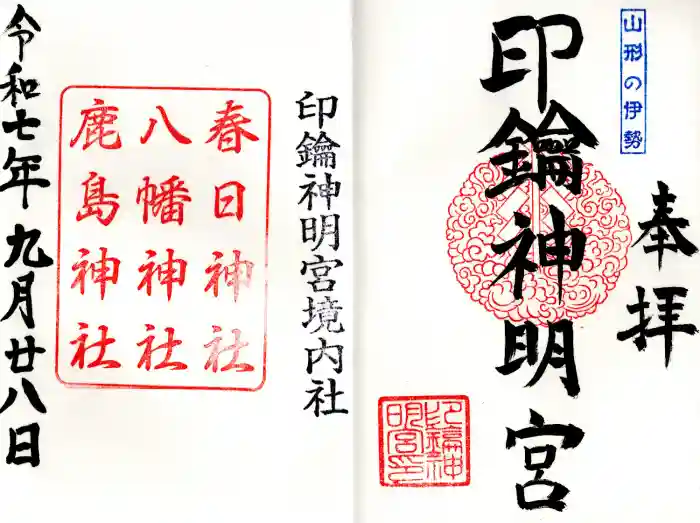 山形の伊勢
奉拝
印鑰神明宮
印鑰神
明宮印
印鑰神明宮境内社
春日神社
八幡神社
鹿島神社
令和七年九月廿八日